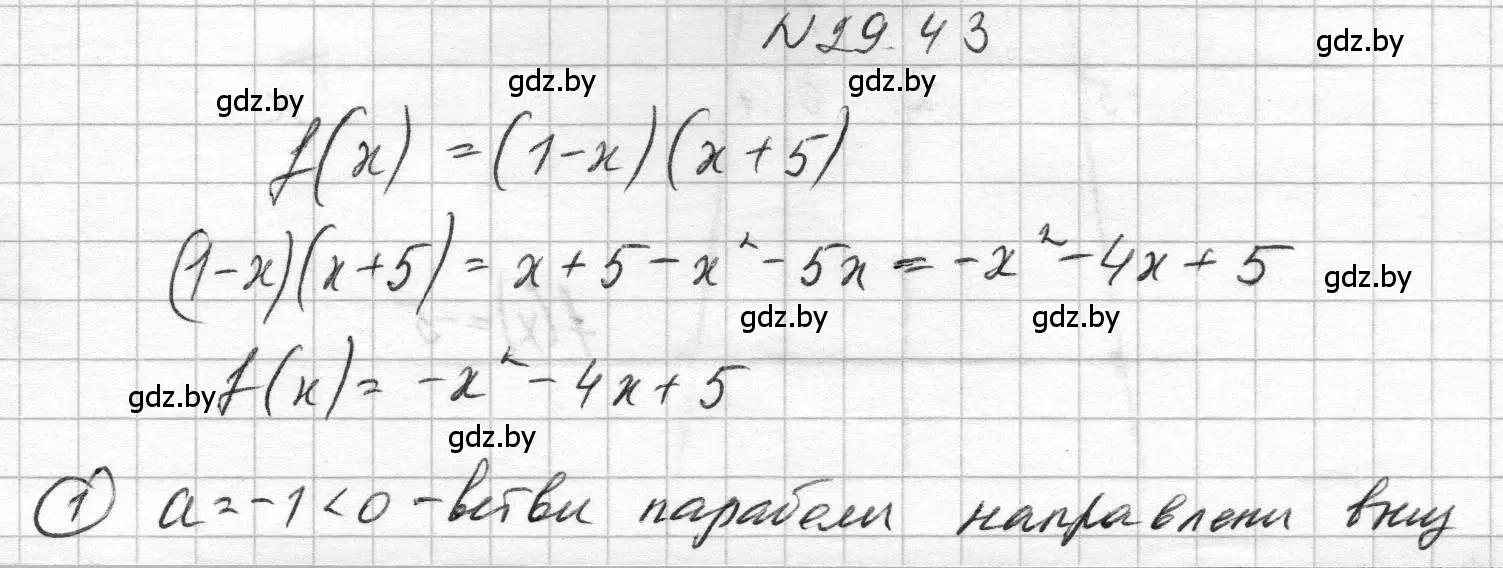 N 29.43 gdz.by
gdz.by gdz.by gdz.by
f(x) = (1-x)(x+5)
(1-x)(x+5) = x+5-x²-5x = -x²-4x+5 gdz.by
gdz.by gdz.by
gdz.by f(x) = -x²-4x+5
gdz.by
① a=-1<0 - ветви параболи направлени вниз